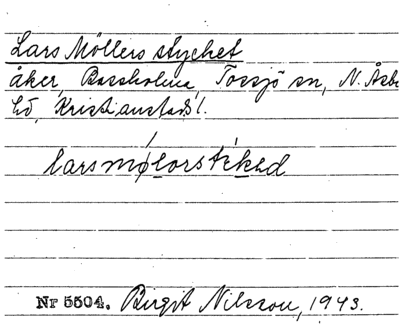 Lars Möllers stycket
åker, Bassholma, Tossjö sn, N. Åsbo
hd, Kristianstads l.
larsmølorstikəd
Nr 5504. Birgit Nilsson, 1943.